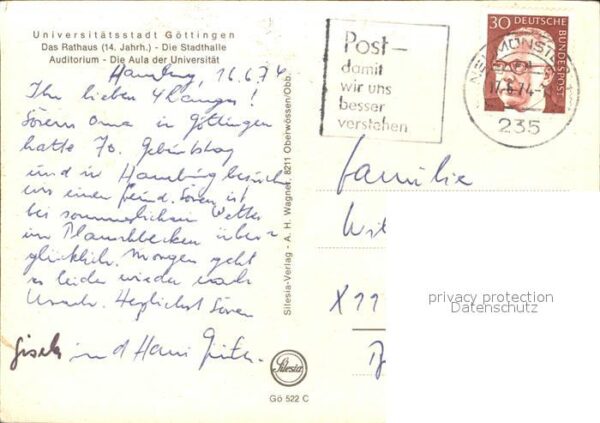 Universitätsstadt Göttingen
Das Rathaus (14. Jahrh.) - Die Stadthalle
Auditorium - Die Aula der Universität
Hamburg, 16.6.74
Ihr lieben
Sörens Oma in Göttingen
hatte 70. Geburtstag
und in Hamburg besuchen
wir einen Freund. Sören ist
bei sommerlichem Wetter
im Planschbecken über-
glücklich. Morgen geht
es leider wieder nach
Herzlichst Sören
Gisela und Hans
Silesia-Verlag - A. H. Wagner, 8211 Oberwössen/Obb.
Silesia
Gö 522 C
Post-
damit
wir uns
besser
verstehen
30 DEUTSCHE
BUNDESPOST
NEUMÜNSTER
17.6.74
235
Familie
Wit
X11
privacy protection
Datenschutz